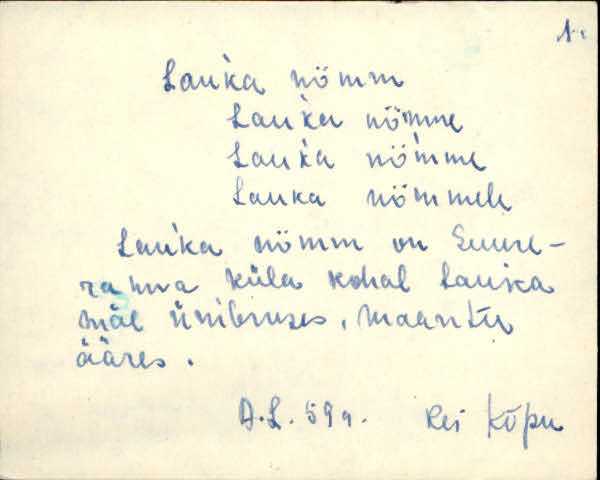 1.
Lauka nõmm
Lauka nõmme
Lauka nõmme
Lauka nõmmele
Lauka nõmm on Suure-
rahva küla kohal Lauka
mäe ümbruses, maantee
ääres.
A.L. 59a. Rei Kõpu